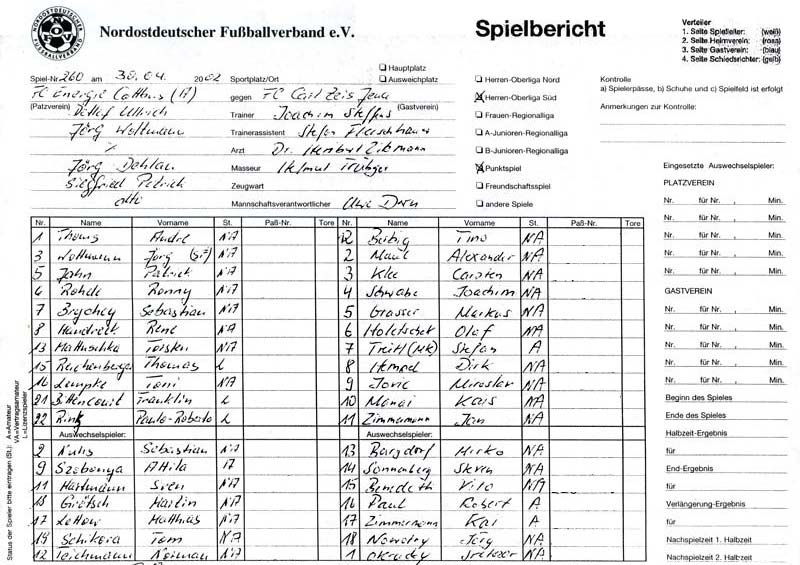 NORDOSTDEUTSCHER FUSSBALLVERBAND
Nordostdeutscher Fußballverband e.V.
Spielbericht
Verteiler
1. Seite Spielleiter: (weiß)
2. Seite Heimverein: (rosa)
3. Seite Gastverein: (blau)
4. Seite Schiedsrichter: (gelb)
Hauptplatz
Ausweichplatz
Spiel-Nr. 260 am 30.04. 2002 Sportplatz/Ort
FC Energie Cottbus (A) gegen FC Carl Zeis Jena
(Platzverein) (Gastverein)
Trainer Joachim Steffens
Jörg Woltmann Trainerassistent Stefan
Arzt Dr.
Masseur Helmut
Siegfried Patrick Zeugwart
Mannschaftsverantwortlicher Uwe Dern
Herren-Oberliga Nord
Herren-Oberliga Süd
Frauen-Regionalliga
A-Junioren-Regionalliga
B-Junioren-Regionalliga
Punktspiel
Freundschaftsspiel
andere Spiele
Kontrolle
a) Spielerpässe, b) Schuhe und c) Spielfeld ist erfolgt
Anmerkungen zur Kontrolle:
Nr. Name Vorname St. Paß-Nr. Tore Nr. Name Vorname St. Paß-Nr. Tore
1 Thoms André NA 12 Berbig Tino NA
3 Woltmann Jörg (SF) NA 2 Maul Alexander NA
5 Jahn Patrick NA 3 Klee Carsten NA
6 Rohde Ronny NA 4 Schwabe Joachim NA
7 Brychcy Sebastian NA 5 Grasser Markus NA
8 Handreck René NA 6 Holetschek Olaf NA
13 Mattuschka Torsten NA 7 Treitl (MK) Stefan A
15 Reichenberger Thomas L 8 Hempel Dirk NA
16 Lempke Toni NA 9 Jovic Miroslav NA
21 Bittencourt Franklin L 10 Manai Kais NA
22 Rink Paulo-Roberto L 11 Zimmermann Jan NA
Auswechselspieler: Auswechselspieler:
2 Sebastian NA 13 Bergdorf Mirko NA
9 Szebenya Attila A 14 Sonnenberg Steven NA
11 Hartmann Sven NA 15 Benedeth Vito NA
18 Grötsch Martin NA 16 Paul Robert A
17 Lettow Matthias NA 17 Zimmermann Kai A
19 Schikora Tom NA 18 Nowotny Jörg NA
12 Teichmann Norman NA 1 NA
Eingesetzte Auswechselspieler:
PLATZVEREIN
Nr. für Nr. , Min.
Nr. für Nr. , Min.
Nr. für Nr. , Min.
Nr. für Nr. , Min.
GASTVEREIN
Nr. für Nr. , Min.
Nr. für Nr. , Min.
Nr. für Nr. , Min.
Nr. für Nr. , Min.
Beginn des Spieles
Ende des Spieles
Halbzeit-Ergebnis
für
End-Ergebnis
für
Verlängerung-Ergebnis
für
Nachspielzeit 1. Halbzeit
Nachspielzeit 2. Halbzeit
Status der Spieler bitte eintragen (St.): A=Amateur
VA=Vertragsamateur
L=Lizenzspieler